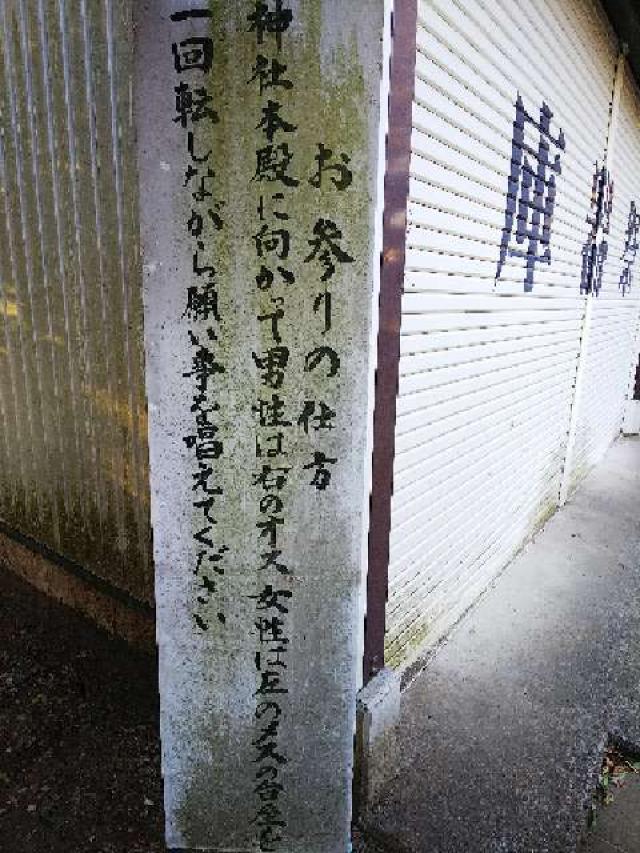 お参りの仕方
神社本殿に向かって男性は右のオス女性は左のメスの台座を
一回転しながら願い事を唱えてください
庫